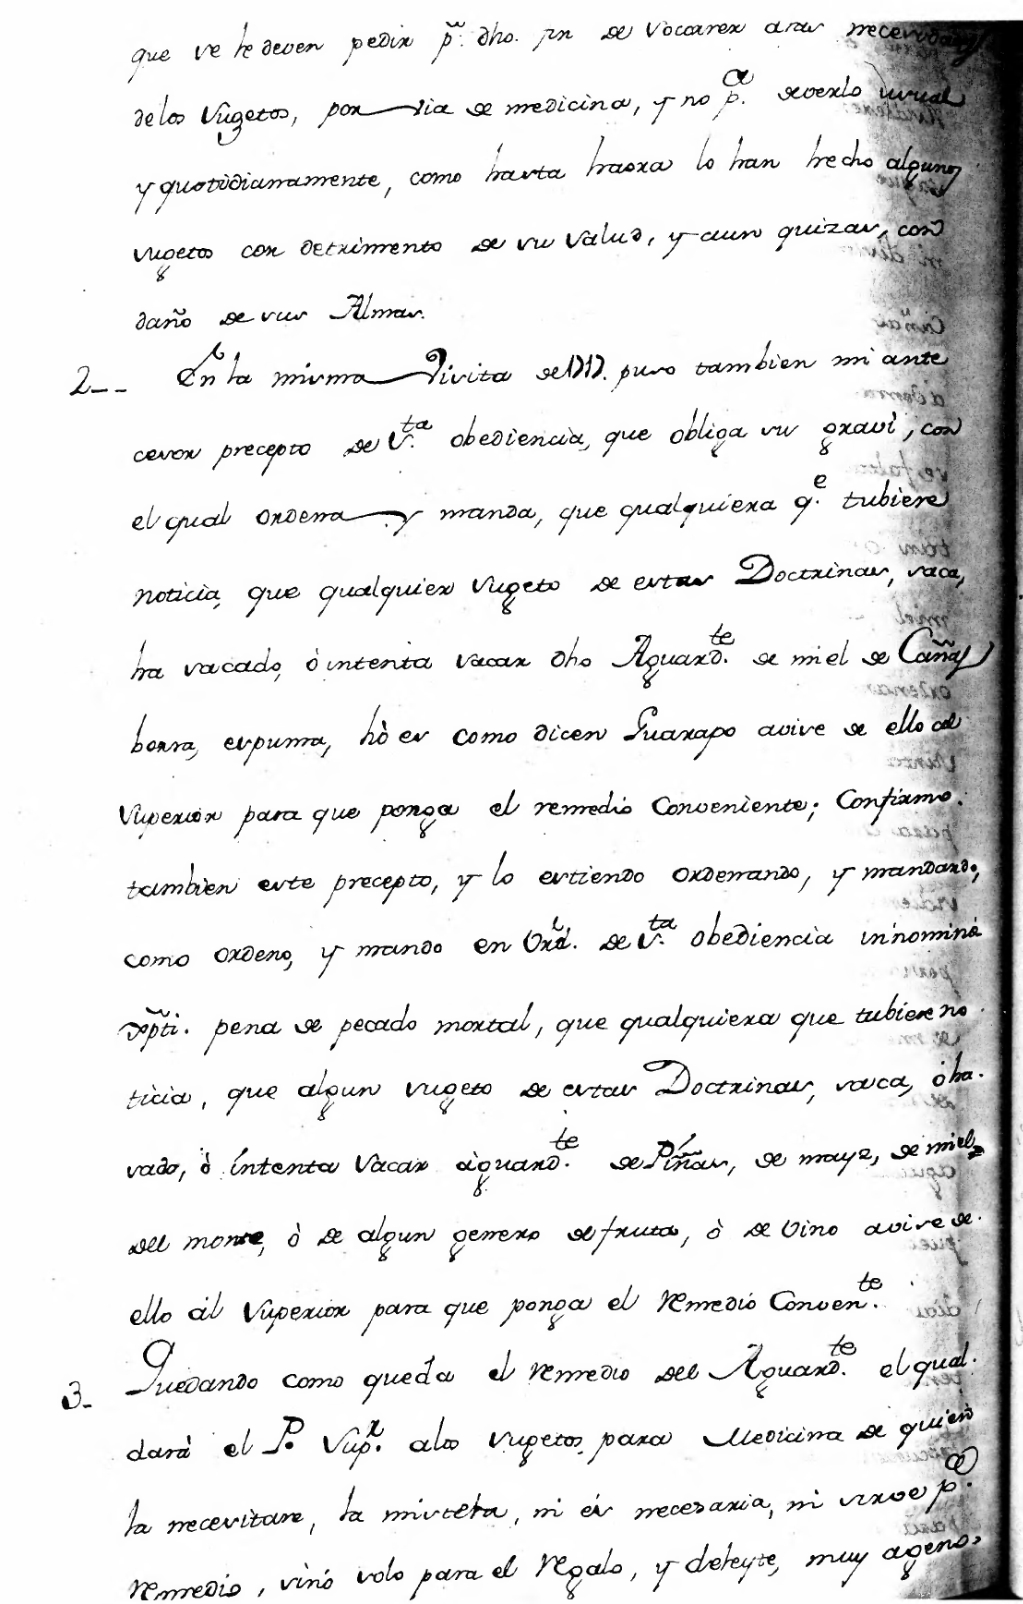 que se le deven pedir p.ª dho. fin de Socorrer a las necesidades
delos Sugetos, por via de medicina, y no p.ª veverlo usual
y quotidianamente, como hasta haora lo han hecho algunos
sugetos con detrimento de su Salud, y aun quizas, con
daño de sus Almas.
2-- En la misma Visita de 1717. puso tambien mi ante
cesor precepto de S.ta obediencia, que obliga su gravi, con
el qual ordena y manda, que qualquiera q.e tubiere
noticia, que qualquier sugeto de estas Doctrinas, saca,
ha sacado, ò intenta sacar dho Aguard.te de miel de Cañas,
borra, espuma, hò es como dicen Guarapo avise de ello al
Superior para que ponga el remedio Conveniente; Confirmo
tambien este precepto, y lo estiendo ordenando, y mandando,
como ordeno, y mando en Vird. de S.ta obediencia in nomine
Xpti. pena de pecado mortal, que qualquiera que tubiere no
ticia, que algun sugeto de estas Doctrinas, saca, ò ha
sado, ò intenta Sacar aguard.te de Piñas, de mays, de miel
del monte, ò de algun genero de fruta, ò de Vino avise de
ello al Superior para que ponga el remedio Conven.te
3- Quedando como queda el remedio del Aguard.te el qual
dará el P. Sup.r alos sugetos para Medicina de quien
la necesitare, la mistela, ni es necesaria, ni sirve p.ª
remedio, sino solo para el regalo, y deleyte, muy ageno,